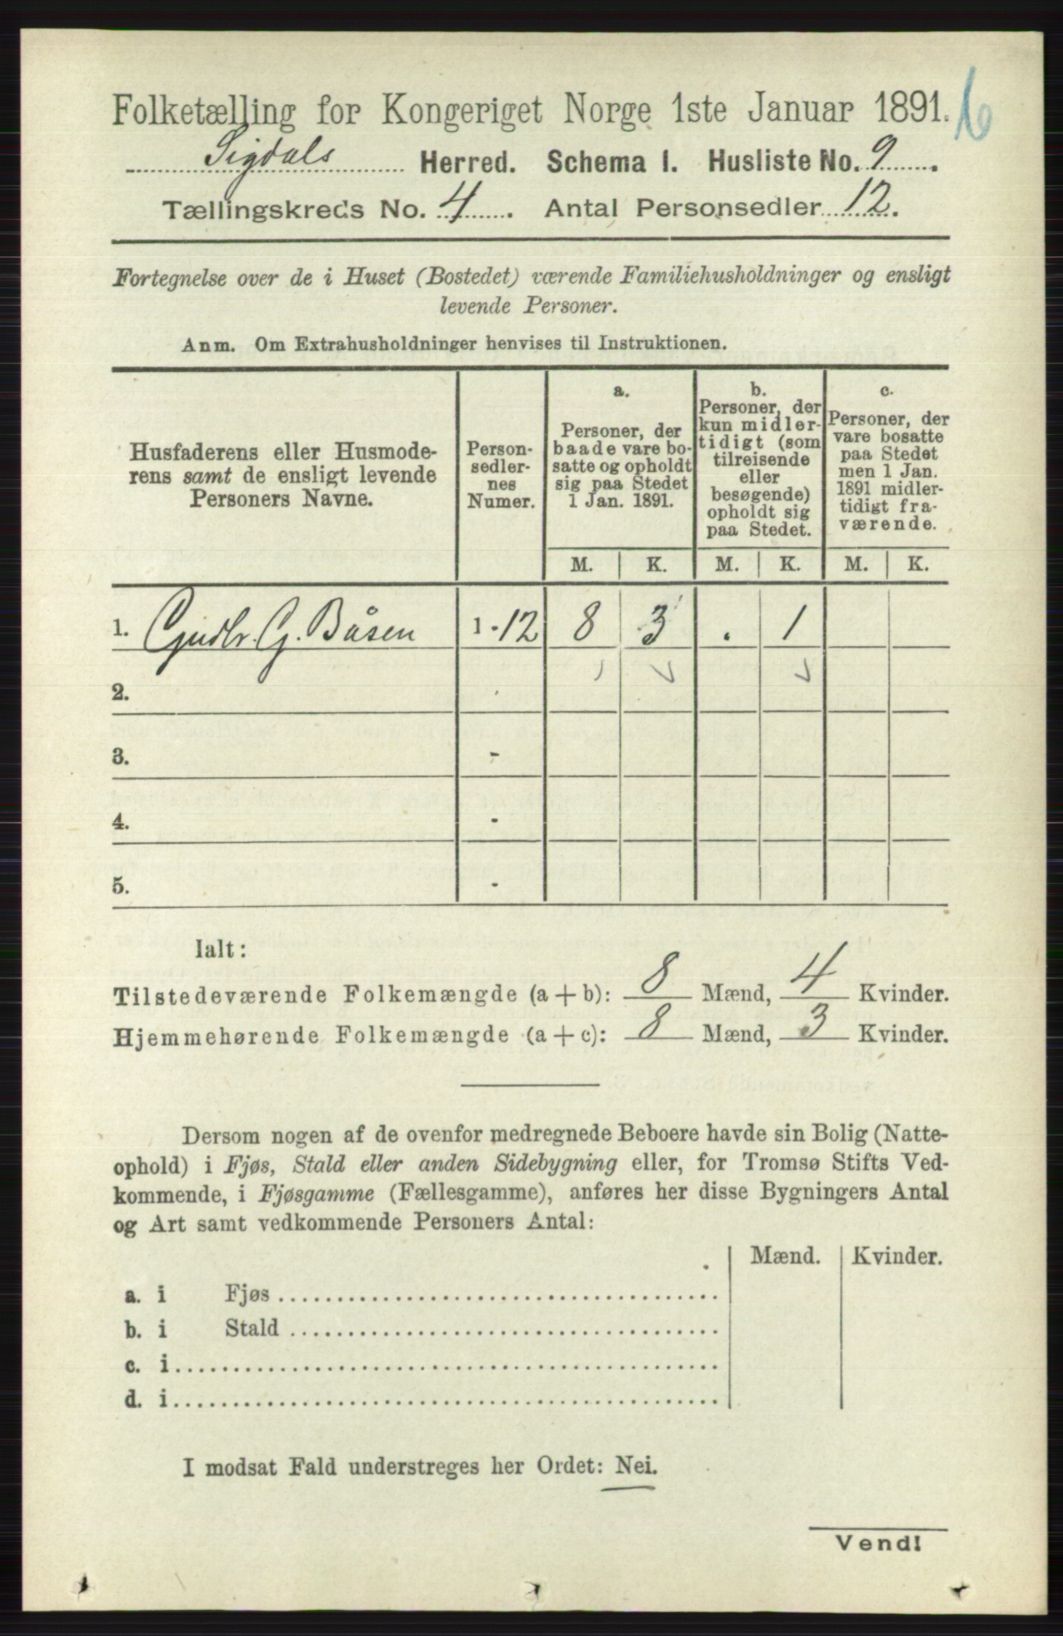 Folketælling for Kongeriget Norge 1ste Januar 1891.
6
Sigdals Herred. Schema I. Husliste No. 9.
Tællingskreds No. 4. Antal Personsedler 12.
Fortegnelse over de i Huset (Bostedet) værende Familiehusholdninger og ensligt
levende Personer.
Anm. Om Extrahusholdninger henvises til Instruktionen.
Husfaderens eller Husmode-
rens samt de ensligt levende
Personers Navne.
Person-
sedler-
nes
Numer.
a.
Personer, der
baade vare bo-
satte og opholdt
sig paa Stedet
1 Jan. 1891.
b.
Personer, der
kun midler-
tidigt (som
tilreisende
eller
besøgende)
opholdt sig
paa Stedet.
c.
Personer, der
vare bosatte
paa Stedet
men 1 Jan.
1891 midler-
tidigt fra-
værende.
M. K. M. K. M. K.
1. Gudbr. G. Båsen 1-12 8 3 . 1
2.
3. -
4. -
5. -
Ialt:
Tilstedeværende Folkemængde (a+b): 8 Mænd, 4 Kvinder.
Hjemmehørende Folkemængde (a+c): 8 Mænd, 3 Kvinder.
Dersom nogen af de ovenfor medregnede Beboere havde sin Bolig (Natte-
ophold) i Fjøs, Stald eller anden Sidebygning eller, for Tromsø Stifts Ved-
kommende, i Fjøsgamme (Fællesgamme), anføres her disse Bygningers Antal
og Art samt vedkommende Personers Antal:
Mænd. Kvinder.
a. i Fjøs
b. i Stald
c. i
d. i
I modsat Fald understreges her Ordet: Nei.
Vend!